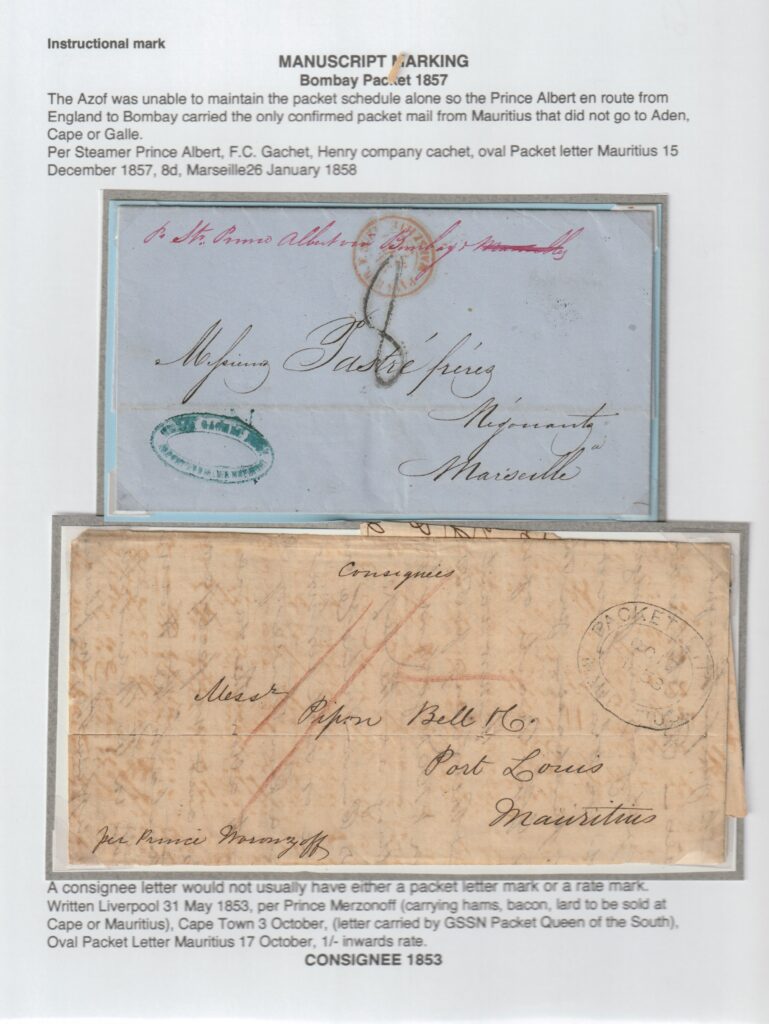 Instructional mark
MANUSCRIPT MARKING
Bombay Packet 1857
The Azof was unable to maintain the packet schedule alone so the Prince Albert en route from
England to Bombay carried the only confirmed packet mail from Mauritius that did not go to Aden,
Cape or Galle.
Per Steamer Prince Albert, F.C. Gachet, Henry company cachet, oval Packet letter Mauritius 15
December 1857, 8d, Marseille26 January 1858
Pr Str. Prince Albert via Bombay & Marseilles
8
Messieurs Pastré frères
Négociants
a
Marseille
Consignees
PACKET
1/-
Messrs
Pipon Bell & Co.
Port Louis
Mauritius
per Prince Woronzoff
A consignee letter would not usually have either a packet letter mark or a rate mark.
Written Liverpool 31 May 1853, per Prince Merzonoff (carrying hams, bacon, lard to be sold at
Cape or Mauritius), Cape Town 3 October, (letter carried by GSSN Packet Queen of the South),
Oval Packet Letter Mauritius 17 October, 1/- inwards rate.
CONSIGNEE 1853